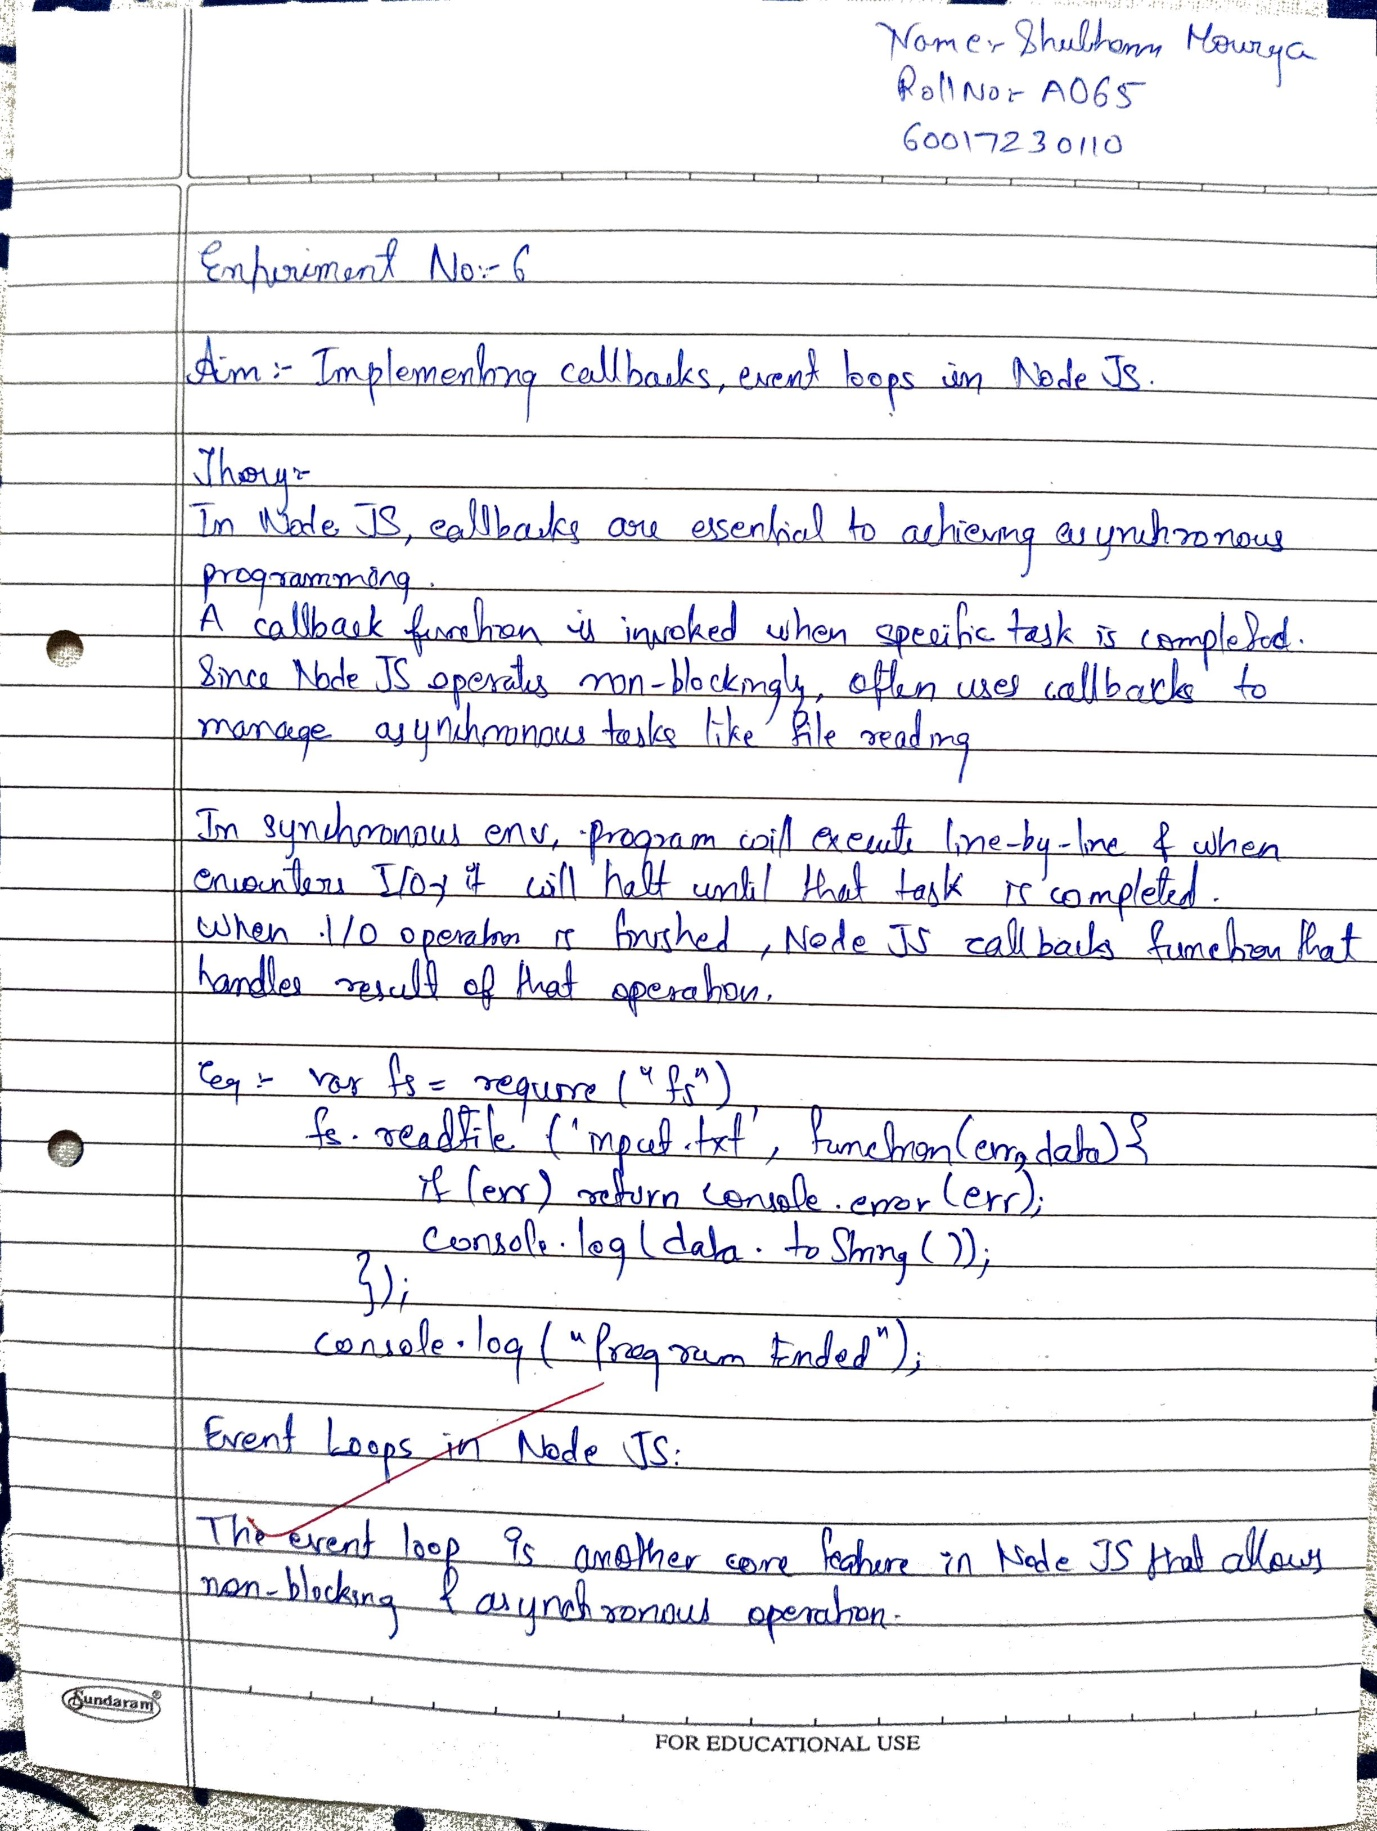 Name:- Shubham Mourya
Roll No:- A065
60017230110
Experiment No:- 6
Aim:- Implementing callbacks, event loops in Node JS.
Thory:-
In Node JS, callbacks are essential to achieving asynchronous
programming.
A callback function is invoked when specific task is completed.
Since Node JS operates non-blockingly, often uses callbacks to
manage asynchronous tasks like file reading
In synchronous env, program will execute line-by-line & when
encounters I/O, it will halt until that task is completed.
When I/O operation is finished, Node JS callbacks function that
handles result of that operation.
eg:- var fs = require ("fs")
fs.readFile ('input.txt', function(err, data) {
if (err) return console.error(err);
console.log(data.toString());
});
console.log("Program Ended");
Event Loops in Node JS:
The event loop is another core feature in Node JS that allows
non-blocking & asynchronous operation.
Sundaram®
FOR EDUCATIONAL USE